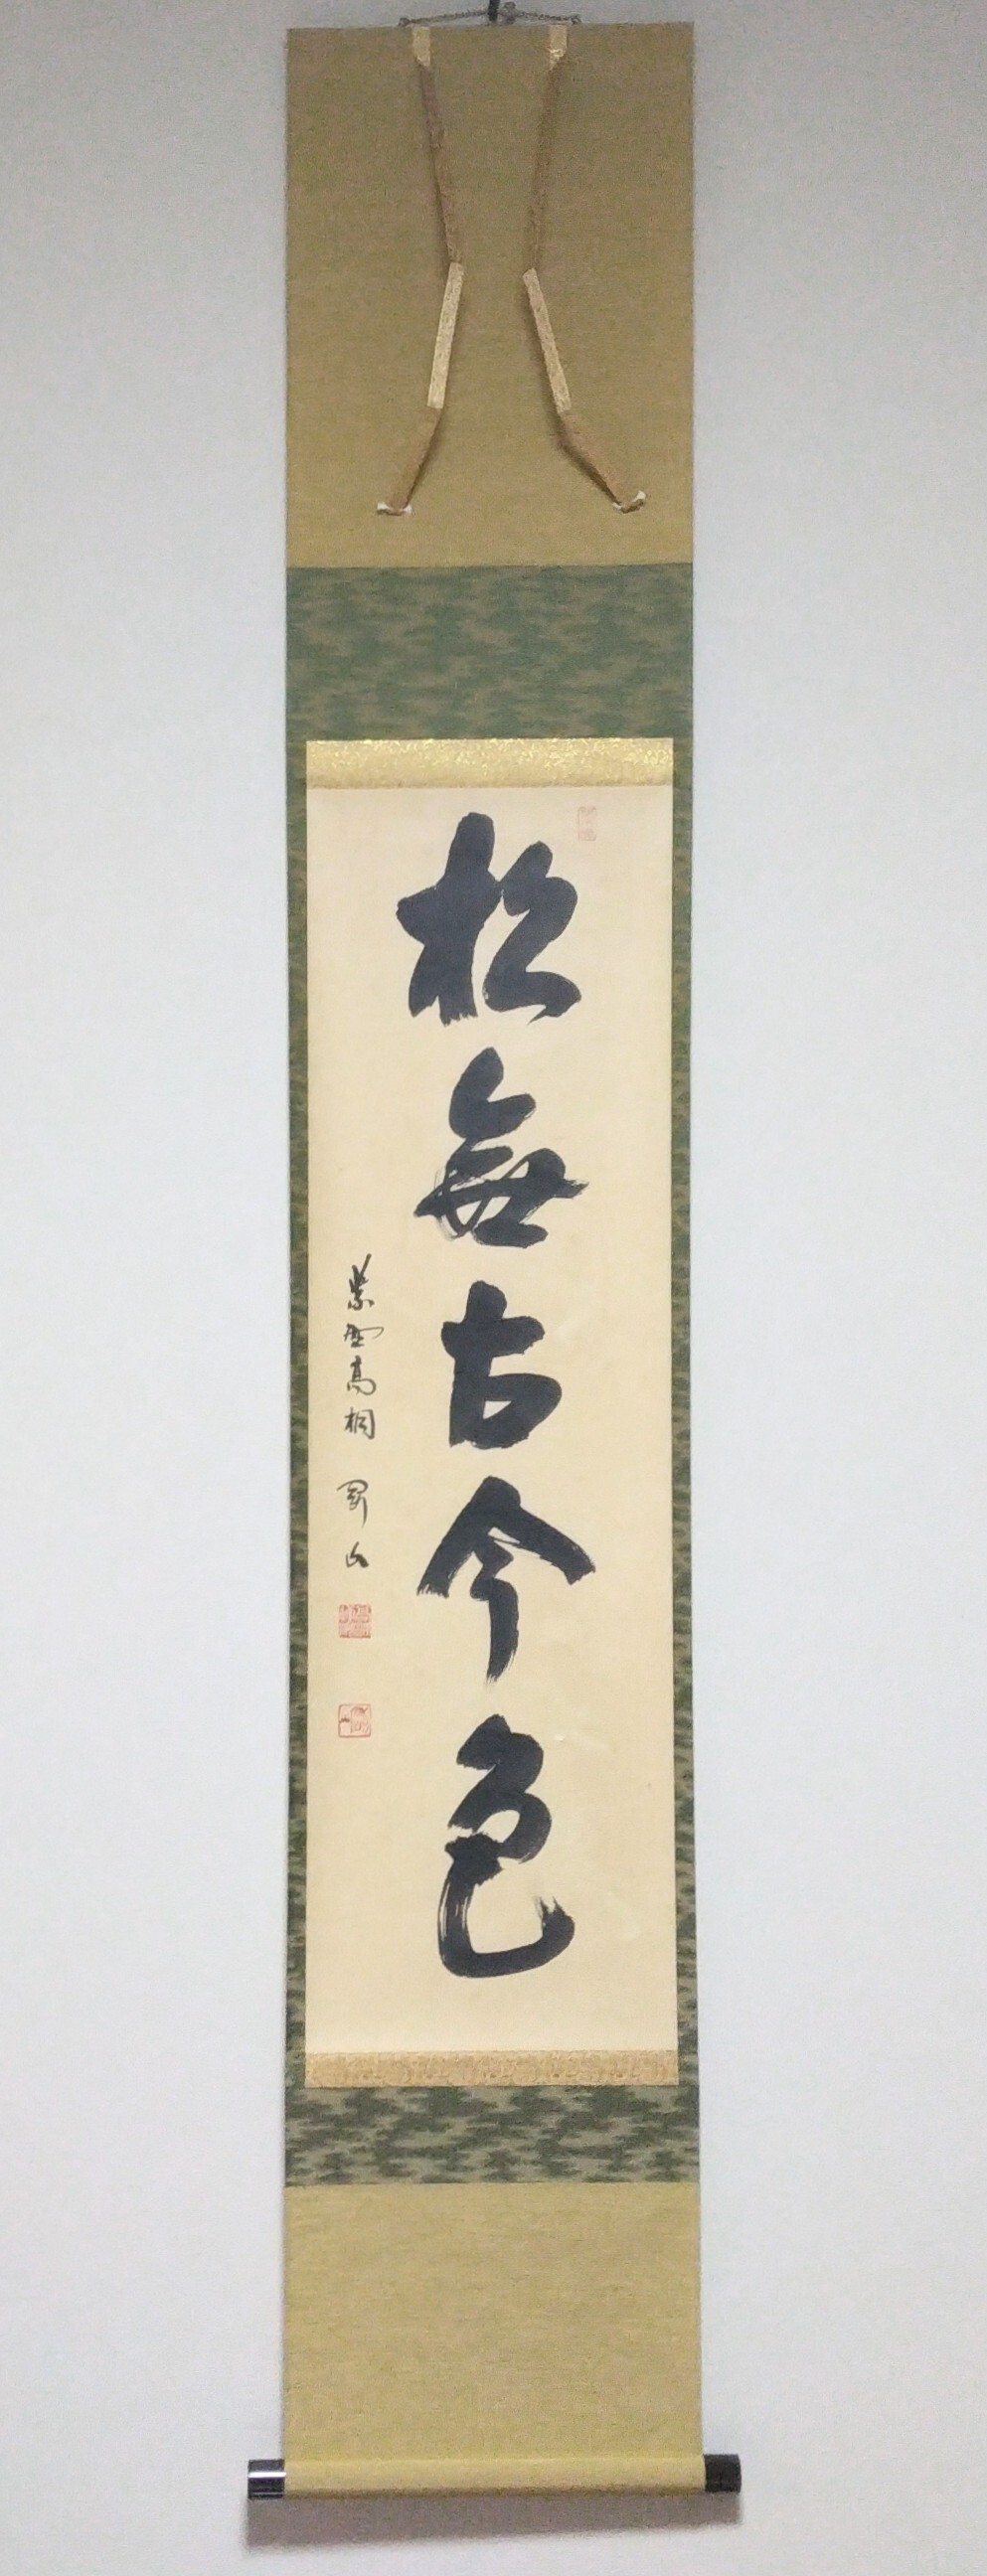 松無古今色
紫野高桐 剛山